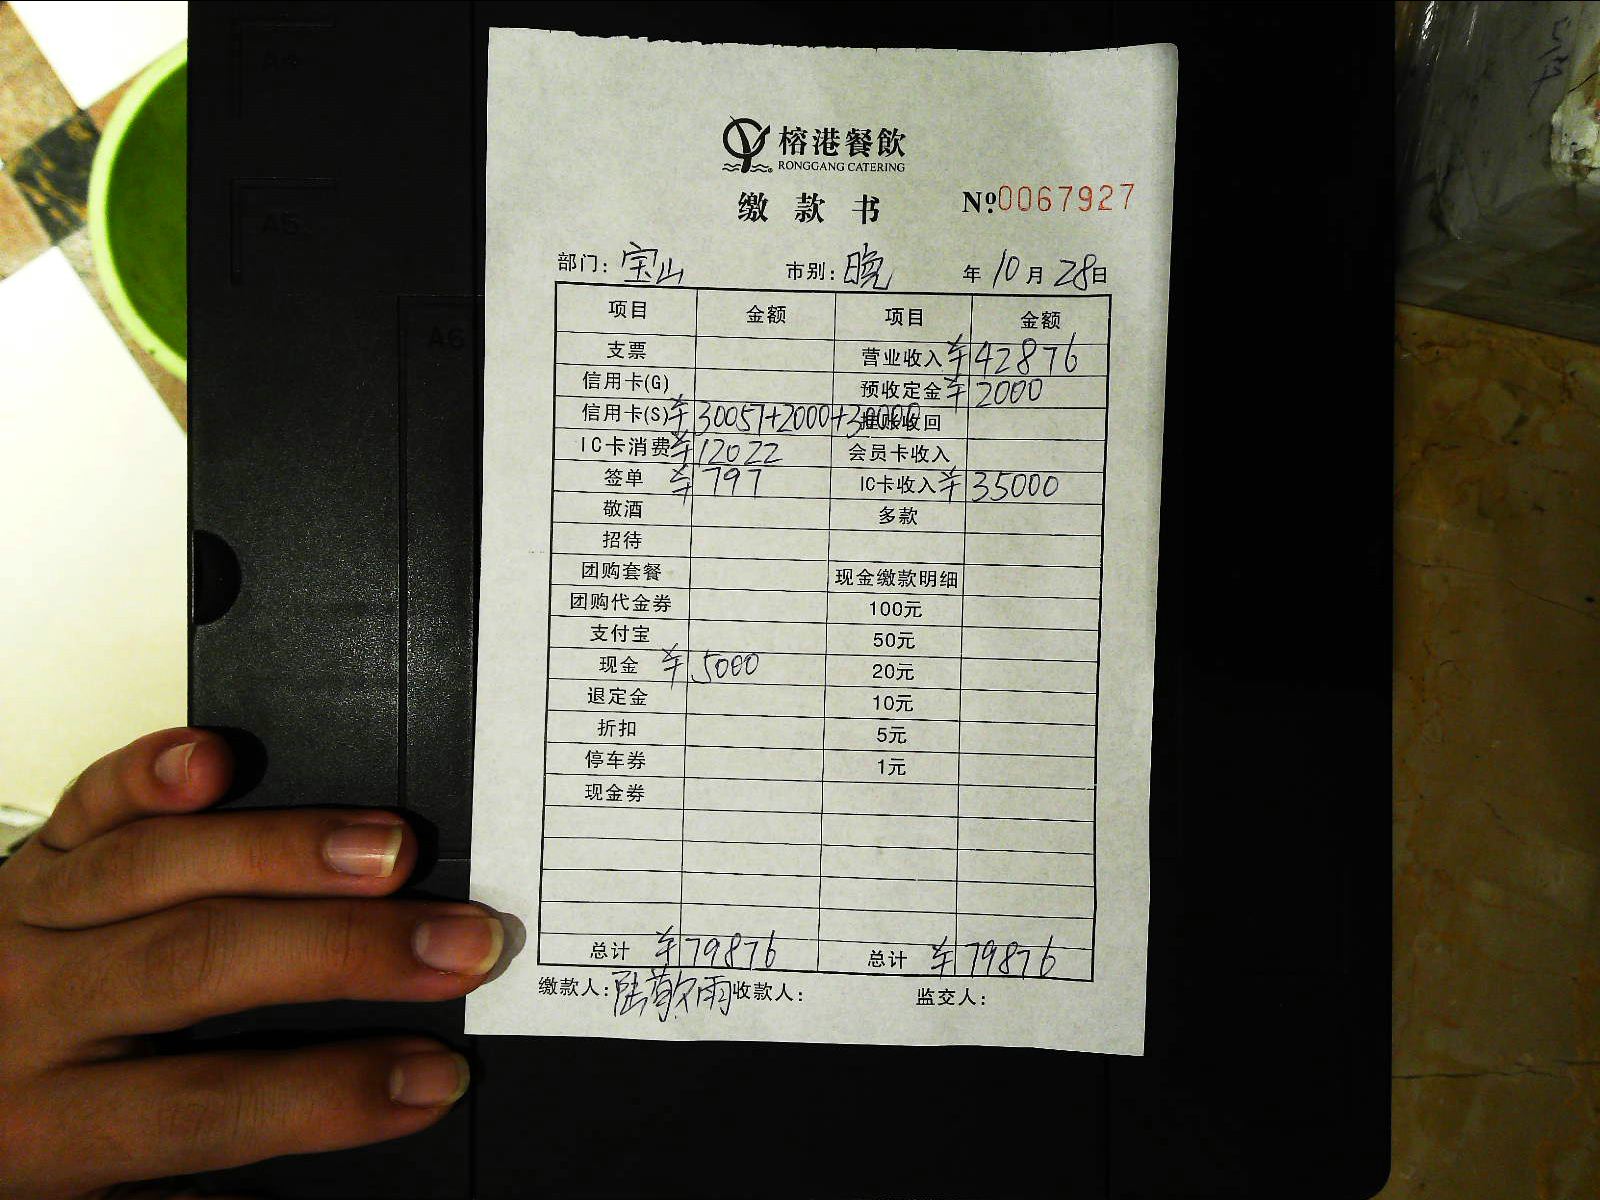 A4
A5
A6
榕港餐飲
RONGGANG CATERING
缴款书 №0067927
部门: 宝山 市别: 晚 年 10 月 28 日
项目 金额 项目 金额
支票 营业收入 ¥42876
信用卡(G) 预收定金 ¥2000
信用卡(S) ¥30057+2000+30000 挂账收回
IC卡消费 ¥12022 会员卡收入
签单 ¥797 IC卡收入 ¥35000
敬酒 多款
招待
团购套餐 现金缴款明细
团购代金券 100元
支付宝 50元
现金 ¥5000 20元
退定金 10元
折扣 5元
停车券 1元
现金券
总计 ¥79876 总计 ¥79876
缴款人: 陆 雨 收款人: 监交人: